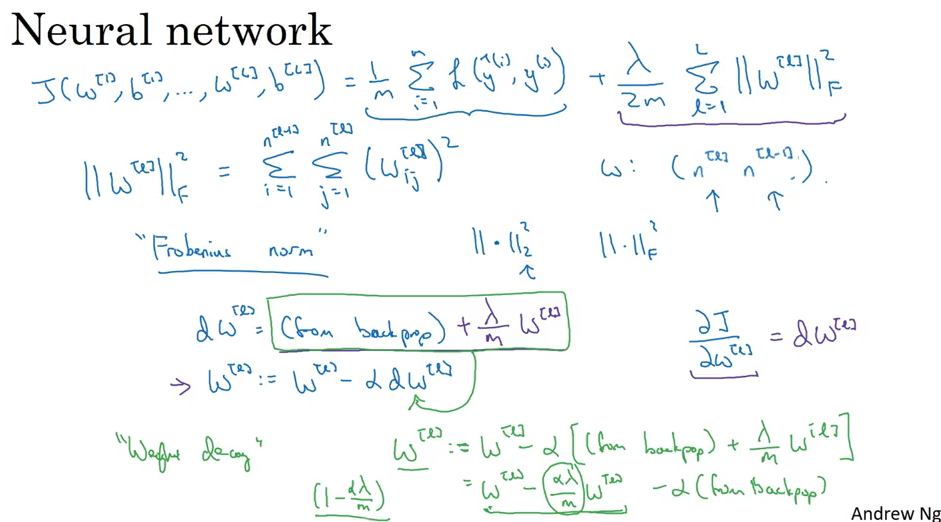 Neural network
J(w^[1], b^[1], ..., w^[L], b^[L]) = 1/m ∑_{i=1}^{m} L(ŷ^(i), y^(i)) + λ/2m ∑_{l=1}^{L} ||w^[l]||_F^2
||w^[l]||_F^2 = ∑_{i=1}^{n^[l-1]} ∑_{j=1}^{n^[l]} (w_ij^[l])^2 w: (n^[l] n^[l-1]).
"Frobenius norm" ||·||_2^2 ||·||_F^2
dw^[l] = (from backprop) + λ/m w^[l]
∂J/∂w^[l] = dw^[l]
→ w^[l] := w^[l] - α dw^[l]
"Weight decay" w^[l] := w^[l] - α[(from backprop) + λ/m w^[l]]
(1 - αλ/m) = w^[l] - αλ/m w^[l] - α(from backprop)
Andrew Ng